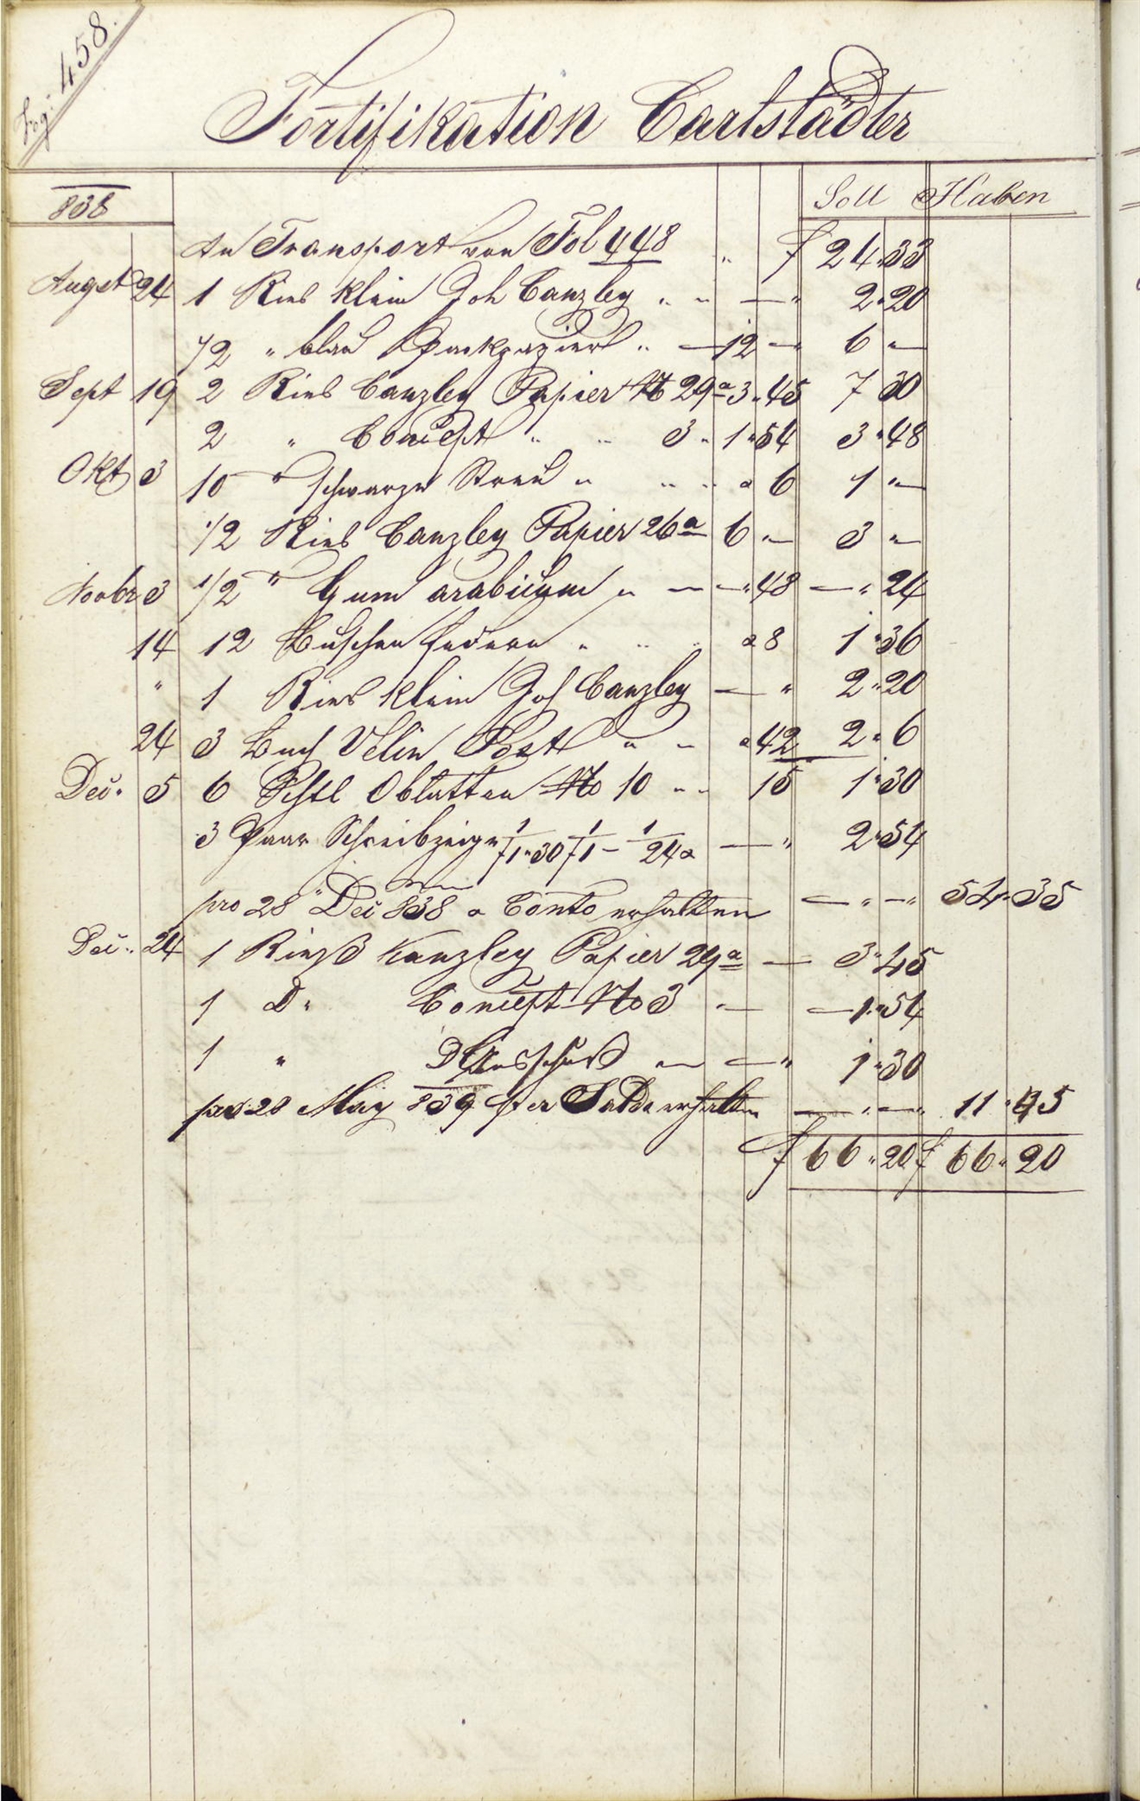 458.
Fortifikation Carlstädter
838 Soll Haben
An Transport von Fol 448 " f 24 " 33
August 24 1 Ries klein Joh Canzley " " — " 2 " 20
1/2 " blau Packpapier " — 12 — 6 " —
Sept 19 2 Ries Canzley Papier No 29a 3 " 45 7 30
2 " Concept " " 3 " 1 " 54 3 " 48
Okt 3 10 " schwarze Streu " " " a 6 1 " —
1/2 Ries Canzley Papier 26a 6 " — 3 " —
Novbr 3 1/2 " Gum arabicum " — — " 48 — " 24
14 12 Buschen federn " " a 8 1 " 36
" 1 Ries klein Joh Canzley — " 2 " 20
24 3 Buch Velin Post " " a 42 2 " 6
Dec. 5 6 Schtl Oblatten No 10 " " 15 1 " 30
3 Paar Schreibzeuge 1/f1 " 30 1/f1 — 1/24 a — " 2 " 54
pro 28 " Dec 838 a Conto erhalten — " — " 54 " 35
Dec. 24 1 Rieß Kanzley Papier 29a — 3 " 45
1 D " Concept No 3 " — — 1 " 54
1 " D Ausschuß " — " 1 " 30
pro 28 May 839 per Saldo erhalten — " — " 11 " 45
f 66 " 20 f 66 " 20